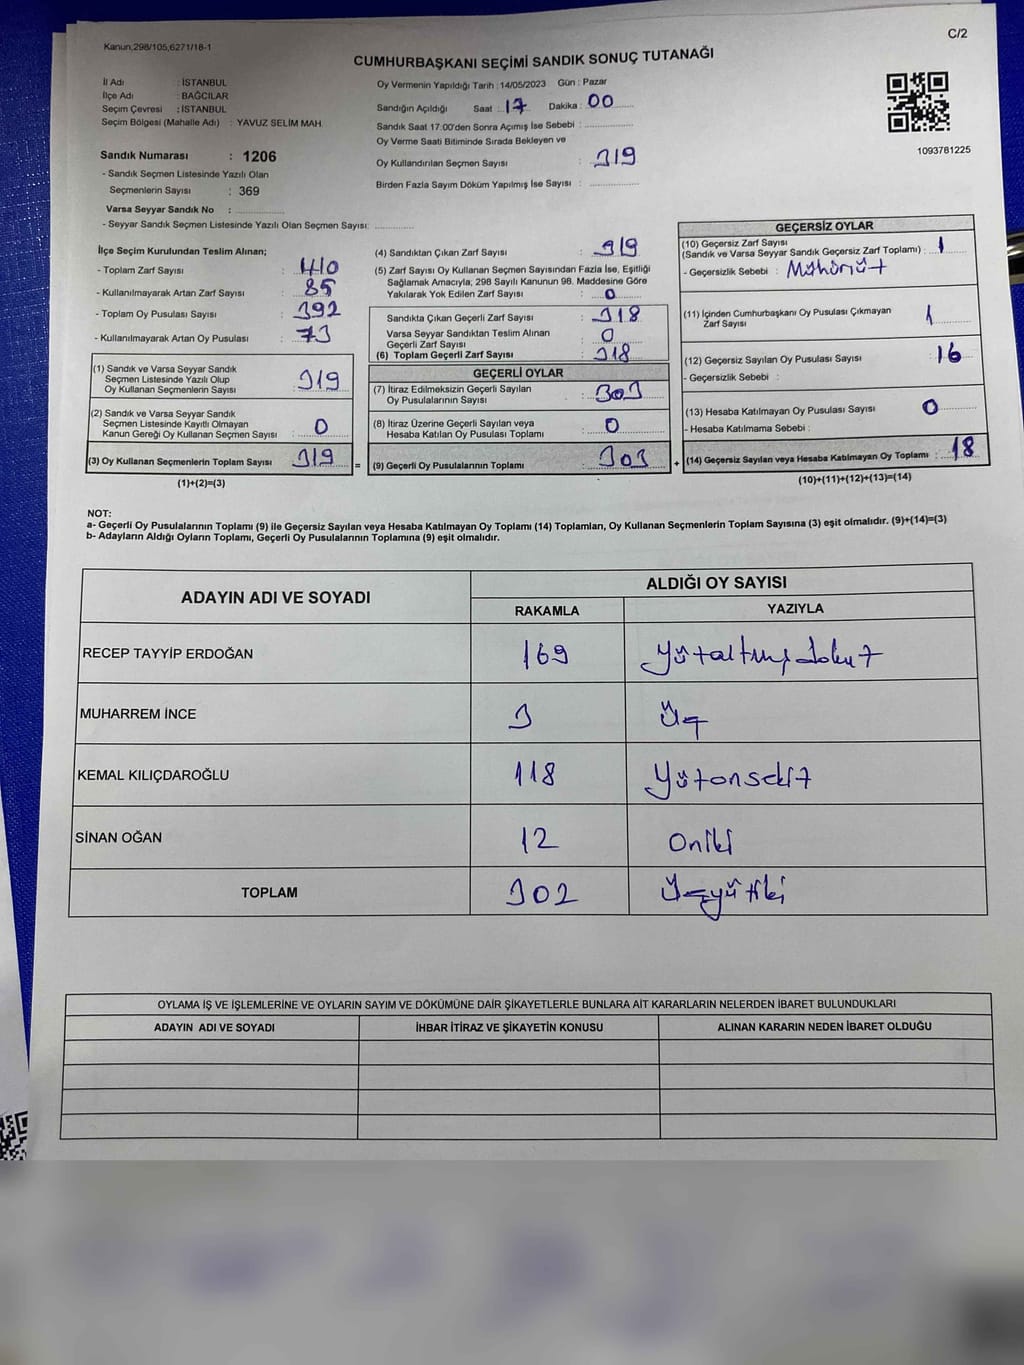 Kanun,298/105,6271/18-1
C/2
CUMHURBAŞKANI SEÇİMİ SANDIK SONUÇ TUTANAĞI
İl Adı : İSTANBUL
İlçe Adı : BAĞCILAR
Seçim Çevresi : İSTANBUL
Seçim Bölgesi (Mahalle Adı) : YAVUZ SELİM MAH.
Sandık Numarası : 1206
- Sandık Seçmen Listesinde Yazılı Olan
Seçmenlerin Sayısı : 369
Varsa Seyyar Sandık No :
- Seyyar Sandık Seçmen Listesinde Yazılı Olan Seçmen Sayısı:
Oy Vermenin Yapıldığı Tarih : 14/05/2023 Gün : Pazar
Sandığın Açıldığı Saat : 17 Dakika : 00
Sandık Saat 17:00'den Sonra Açımış İse Sebebi :
Oy Verme Saati Bitiminde Sırada Bekleyen ve
Oy Kullandırılan Seçmen Sayısı : 319
Birden Fazla Sayım Döküm Yapılmış İse Sayısı :
1093781225
İlçe Seçim Kurulundan Teslim Alınan;
- Toplam Zarf Sayısı : 410
- Kullanılmayarak Artan Zarf Sayısı : 85
- Toplam Oy Pusulası Sayısı : 392
- Kullanılmayarak Artan Oy Pusulası : 73
(1) Sandık ve Varsa Seyyar Sandık
Seçmen Listesinde Yazılı Olup
Oy Kullanan Seçmenlerin Sayısı : 319
(2) Sandık ve Varsa Seyyar Sandık
Seçmen Listesinde Kayıtlı Olmayan
Kanun Gereği Oy Kullanan Seçmen Sayısı : 0
(3) Oy Kullanan Seçmenlerin Toplam Sayısı : 319
(1)+(2)=(3)
=
(4) Sandıktan Çıkan Zarf Sayısı : 319
(5) Zarf Sayısı Oy Kullanan Seçmen Sayısından Fazla İse, Eşitliği
Sağlamak Amacıyla, 298 Sayılı Kanunun 98. Maddesine Göre
Yakılarak Yok Edilen Zarf Sayısı : 0
Sandıkta Çıkan Geçerli Zarf Sayısı : 318
Varsa Seyyar Sandıktan Teslim Alınan
Geçerli Zarf Sayısı : 0
(6) Toplam Geçerli Zarf Sayısı : 318
GEÇERLİ OYLAR
(7) İtiraz Edilmeksizin Geçerli Sayılan
Oy Pusulalarının Sayısı : 303
(8) İtiraz Üzerine Geçerli Sayılan veya
Hesaba Katılan Oy Pusulası Toplamı : 0
(9) Geçerli Oy Pusulalarının Toplamı : 303
+
GEÇERSİZ OYLAR
(10) Geçersiz Zarf Sayısı
(Sandık ve Varsa Seyyar Sandık Geçersiz Zarf Toplamı) : 1
- Geçersizlik Sebebi :
(11) İçinden Cumhurbaşkanı Oy Pusulası Çıkmayan
Zarf Sayısı : 1
(12) Geçersiz Sayılan Oy Pusulası Sayısı : 16
- Geçersizlik Sebebi :
(13) Hesaba Katılmayan Oy Pusulası Sayısı : 0
- Hesaba Katılmama Sebebi :
(14) Geçersiz Sayılan veya Hesaba Katılmayan Oy Toplamı : 18
(10)+(11)+(12)+(13)=(14)
NOT:
a- Geçerli Oy Pusulalarının Toplamı (9) ile Geçersiz Sayılan veya Hesaba Katılmayan Oy Toplamı (14) Toplamları, Oy Kullanan Seçmenlerin Toplam Sayısına (3) eşit olmalıdır. (9)+(14)=(3)
b- Adayların Aldığı Oyların Toplamı, Geçerli Oy Pusulalarının Toplamına (9) eşit olmalıdır.
ADAYIN ADI VE SOYADI
ALDIĞI OY SAYISI
RAKAMLA YAZIYLA
RECEP TAYYİP ERDOĞAN 169 Yüzaltmışdokuz
MUHARREM İNCE 3 Üç
KEMAL KILIÇDAROĞLU 118 Yüzonsekiz
SİNAN OĞAN 12 Oniki
TOPLAM 302 Üçyüziki
OYLAMA İŞ VE İŞLEMLERİNE VE OYLARIN SAYIM VE DÖKÜMÜNE DAİR ŞİKAYETLERLE BUNLARA AİT KARARLARIN NELERDEN İBARET BULUNDUKLARI
ADAYIN ADI VE SOYADI İHBAR İTİRAZ VE ŞİKAYETİN KONUSU ALINAN KARARIN NEDEN İBARET OLDUĞU